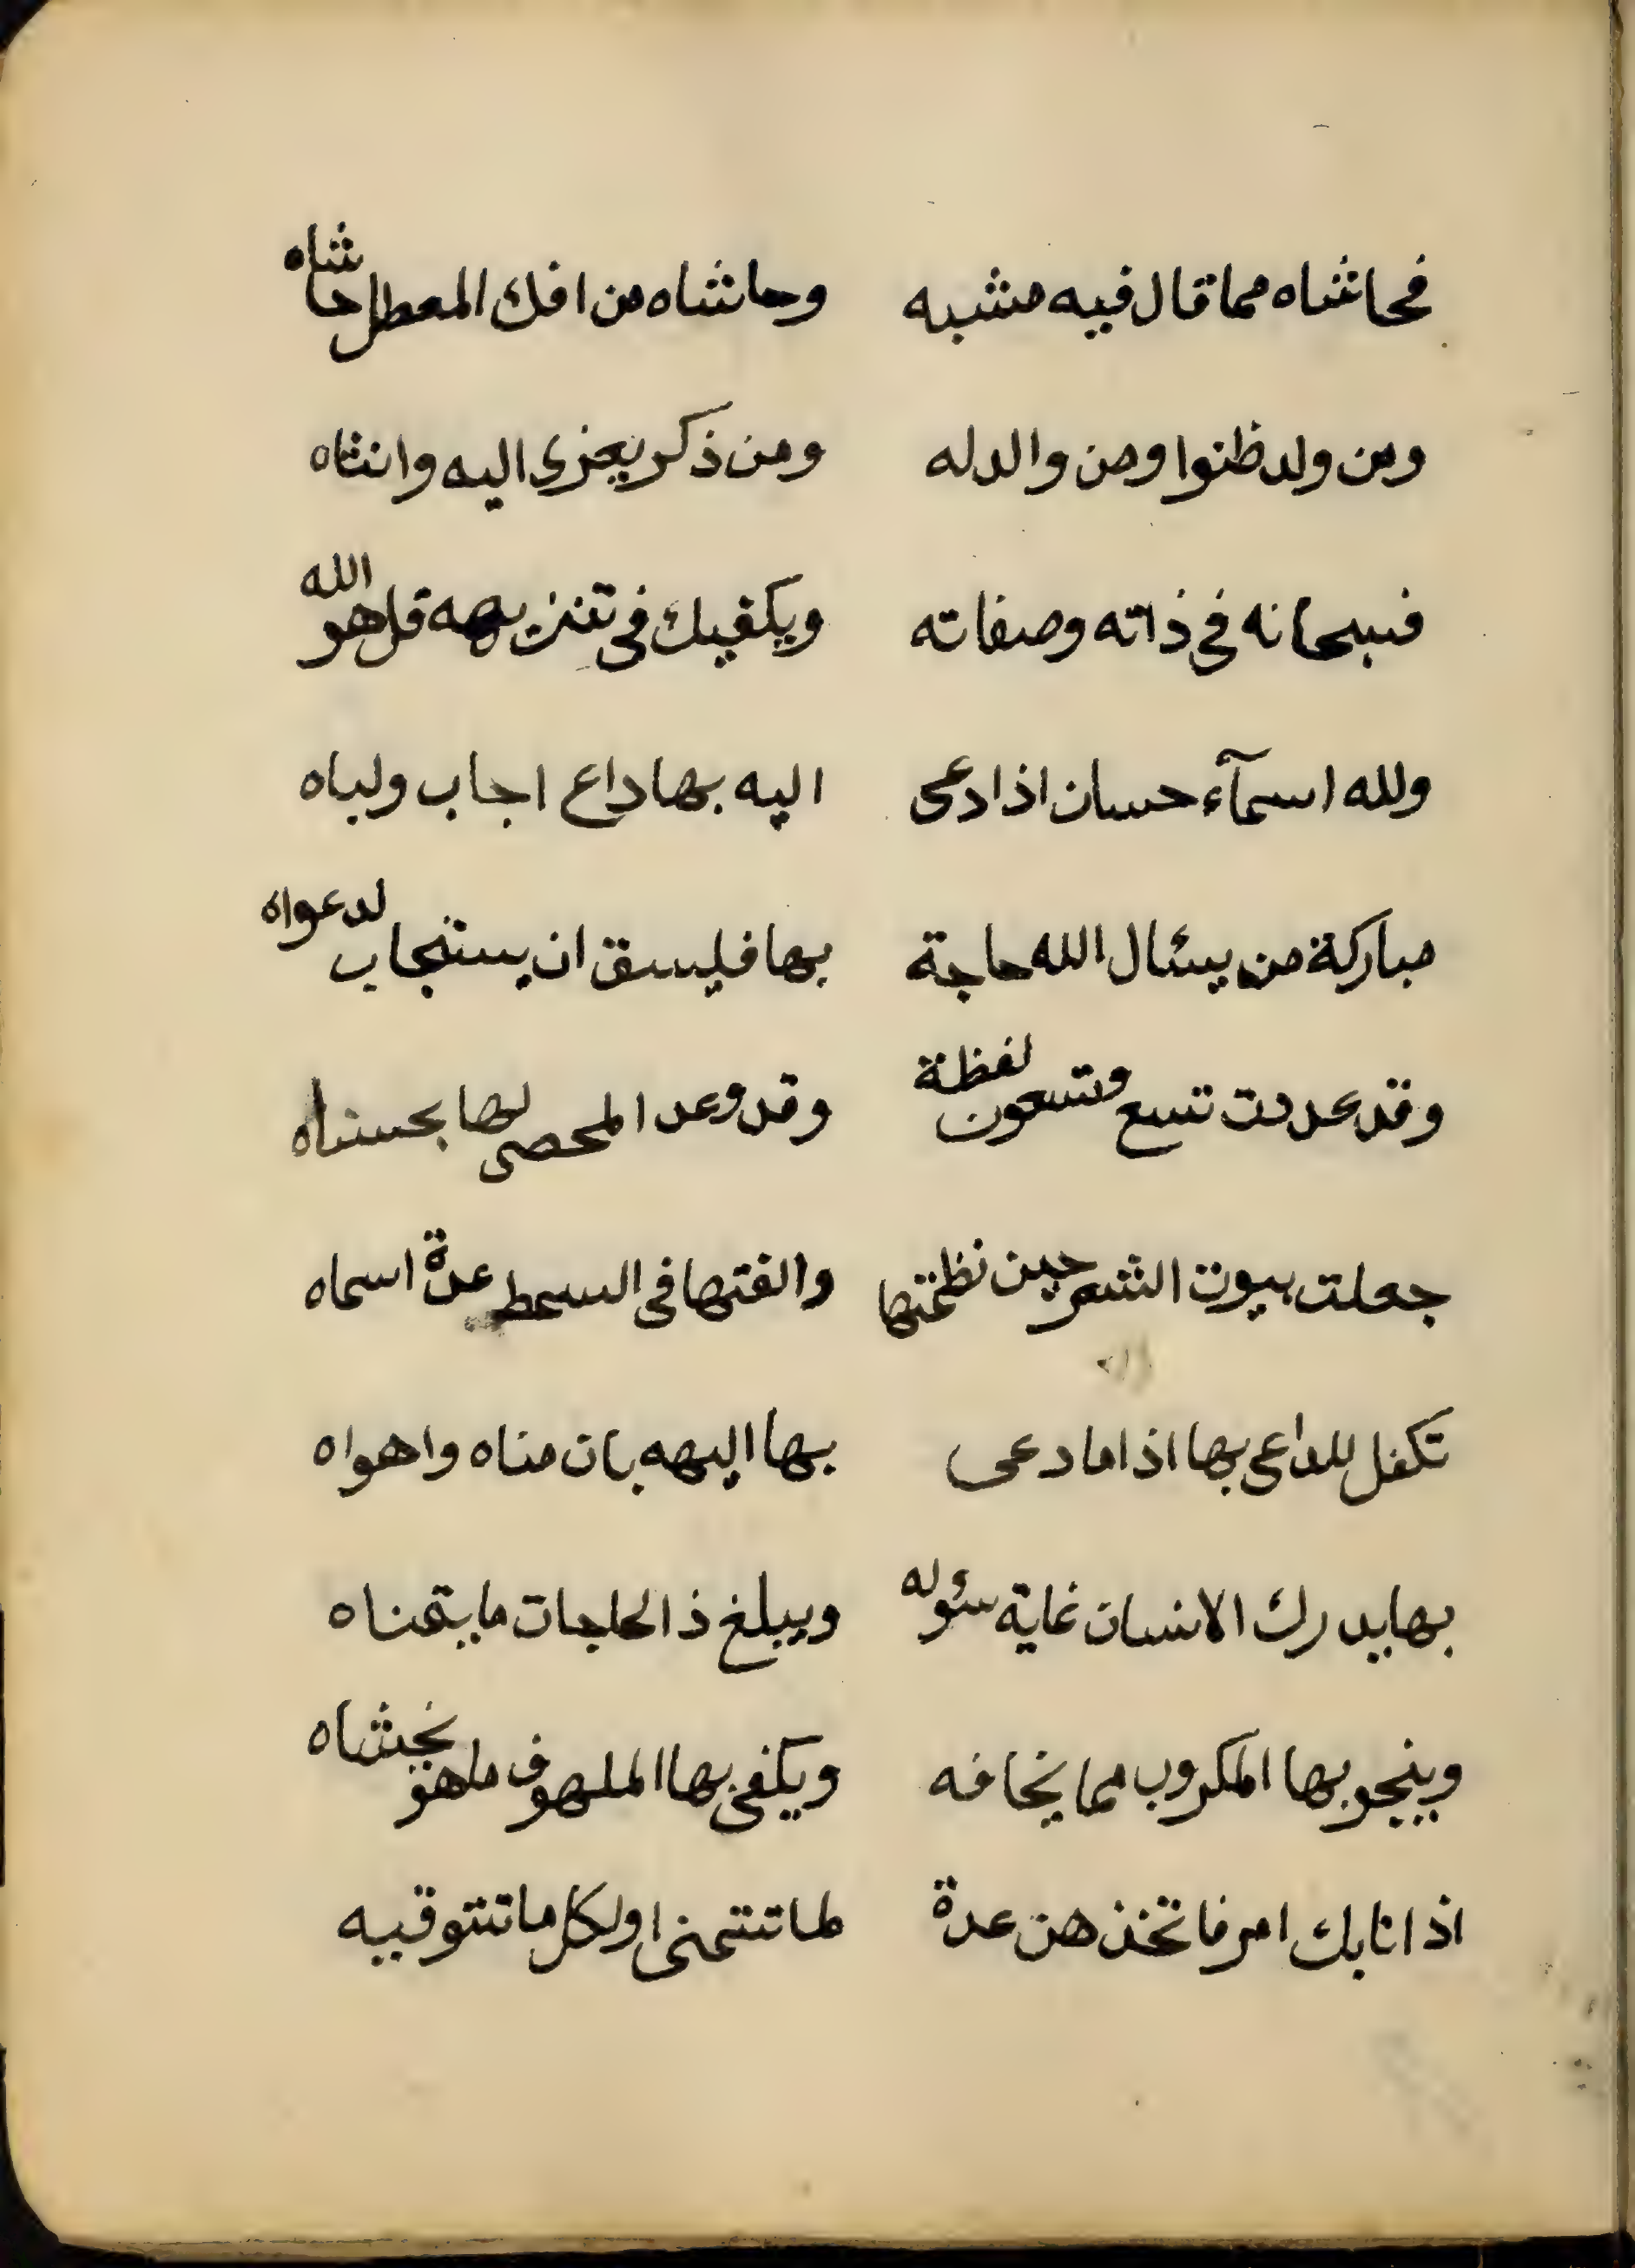 فحاشاه مما قال فيه مشبه وحاشاه من افك المعطل حاشاه
ومن ولد ظنوا ومن والد له ومن ذكر يعزى اليه وانثاه
فسبحانه في ذاته وصفاته ويكفيك في تنزيهه قل هو الله
ولله اسمآء حسان اذا دعى اليه بها داع اجاب ولباه
مباركة من يسئال الله حاجة بها فليسق ان يستجاب لدعواه
وقد عددت تسع وتسعون لفظة وقد وعد المحصى لها بحسناه
جعلت بيوت الشعر حين نظمتها والفتها في السمط عدة اسماه
تكفل للداعي بها اذا ما دعى بها اليهه بان مناه واهواه
بها يدرك الانسان غاية سئوله ويبلغ ذا الحاجات ما يتمناه
وينجو بها المكروب مما يخافه ويكفى بها الملهوف ما هو يخشاه
اذا نابك امر فاتخذ هن عدة لما تتمنى او لكل ما تتوقيه